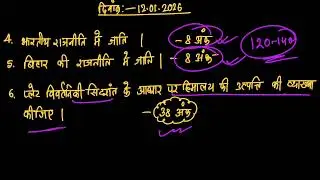 दिनांक:-12.01.2026
4. भारतीय राजनीति में जाति | - 8 अंक 120-140
5. बिहार की राजनीति में जाति | - 8 अंक
6. प्लेट विवर्तनिकी सिद्धांत के आधार पर हिमालय की उत्पत्ति की व्याख्या
कीजिए | - 38 अंक